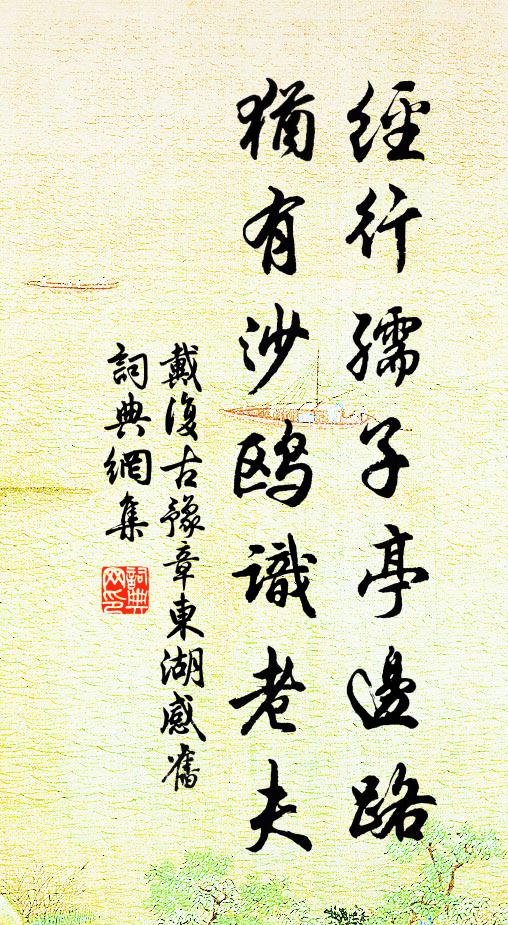 經行孺子亭邊路
猶有沙鷗識老夫
戴復古豫章東湖感舊
詞典網集
詞典网印